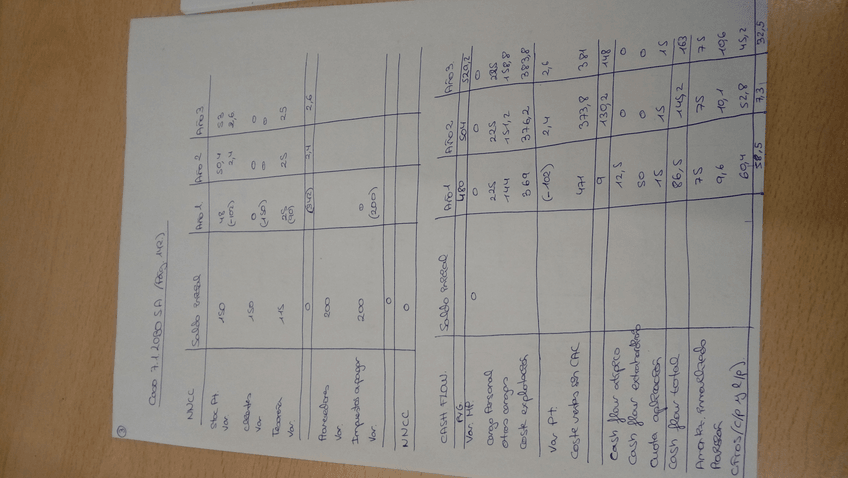 3
Caso 7.1 ZOBO S.A. (Pág. 142)
NNCC Saldo inicial Año 1 Año 2 Año 3
Stoc PT 150 48 50,4 53
Var. (-102) 2,4 2,6
Clientes 150 0 0 0
Var (150) 0 0
Tesorería 115 25 25 25
Var. (90)
0 (342) 2,4 2,6
Proveedores 200
Var
Impuestos a pagar 200 0
Var (200)
0
NNCC 0
CASH FLOW. Saldo inicial Año 1 Año 2 Año 3
480 504 529,2
Var. MP. 0 0 0 0
Cargo Personal 225 225 225
otros cargos 144 151,2 158,8
Coste explotación 369 376,2 383,8
Var PT. (-102) 2,4 2,6
Coste ventas sin CAC 471 373,8 381
Cash flow típico 9 130,2 148
Cash flow extraordinario 12,5 0 0
50 0 0
Cuota aplicación 15 15 15
Cash flow total 86,5 145,2 163
Amort. inmovilizado 75 75 75
9,6 10,1 10,6
60,4 52,8 45,2
58,5 7,3 32,5